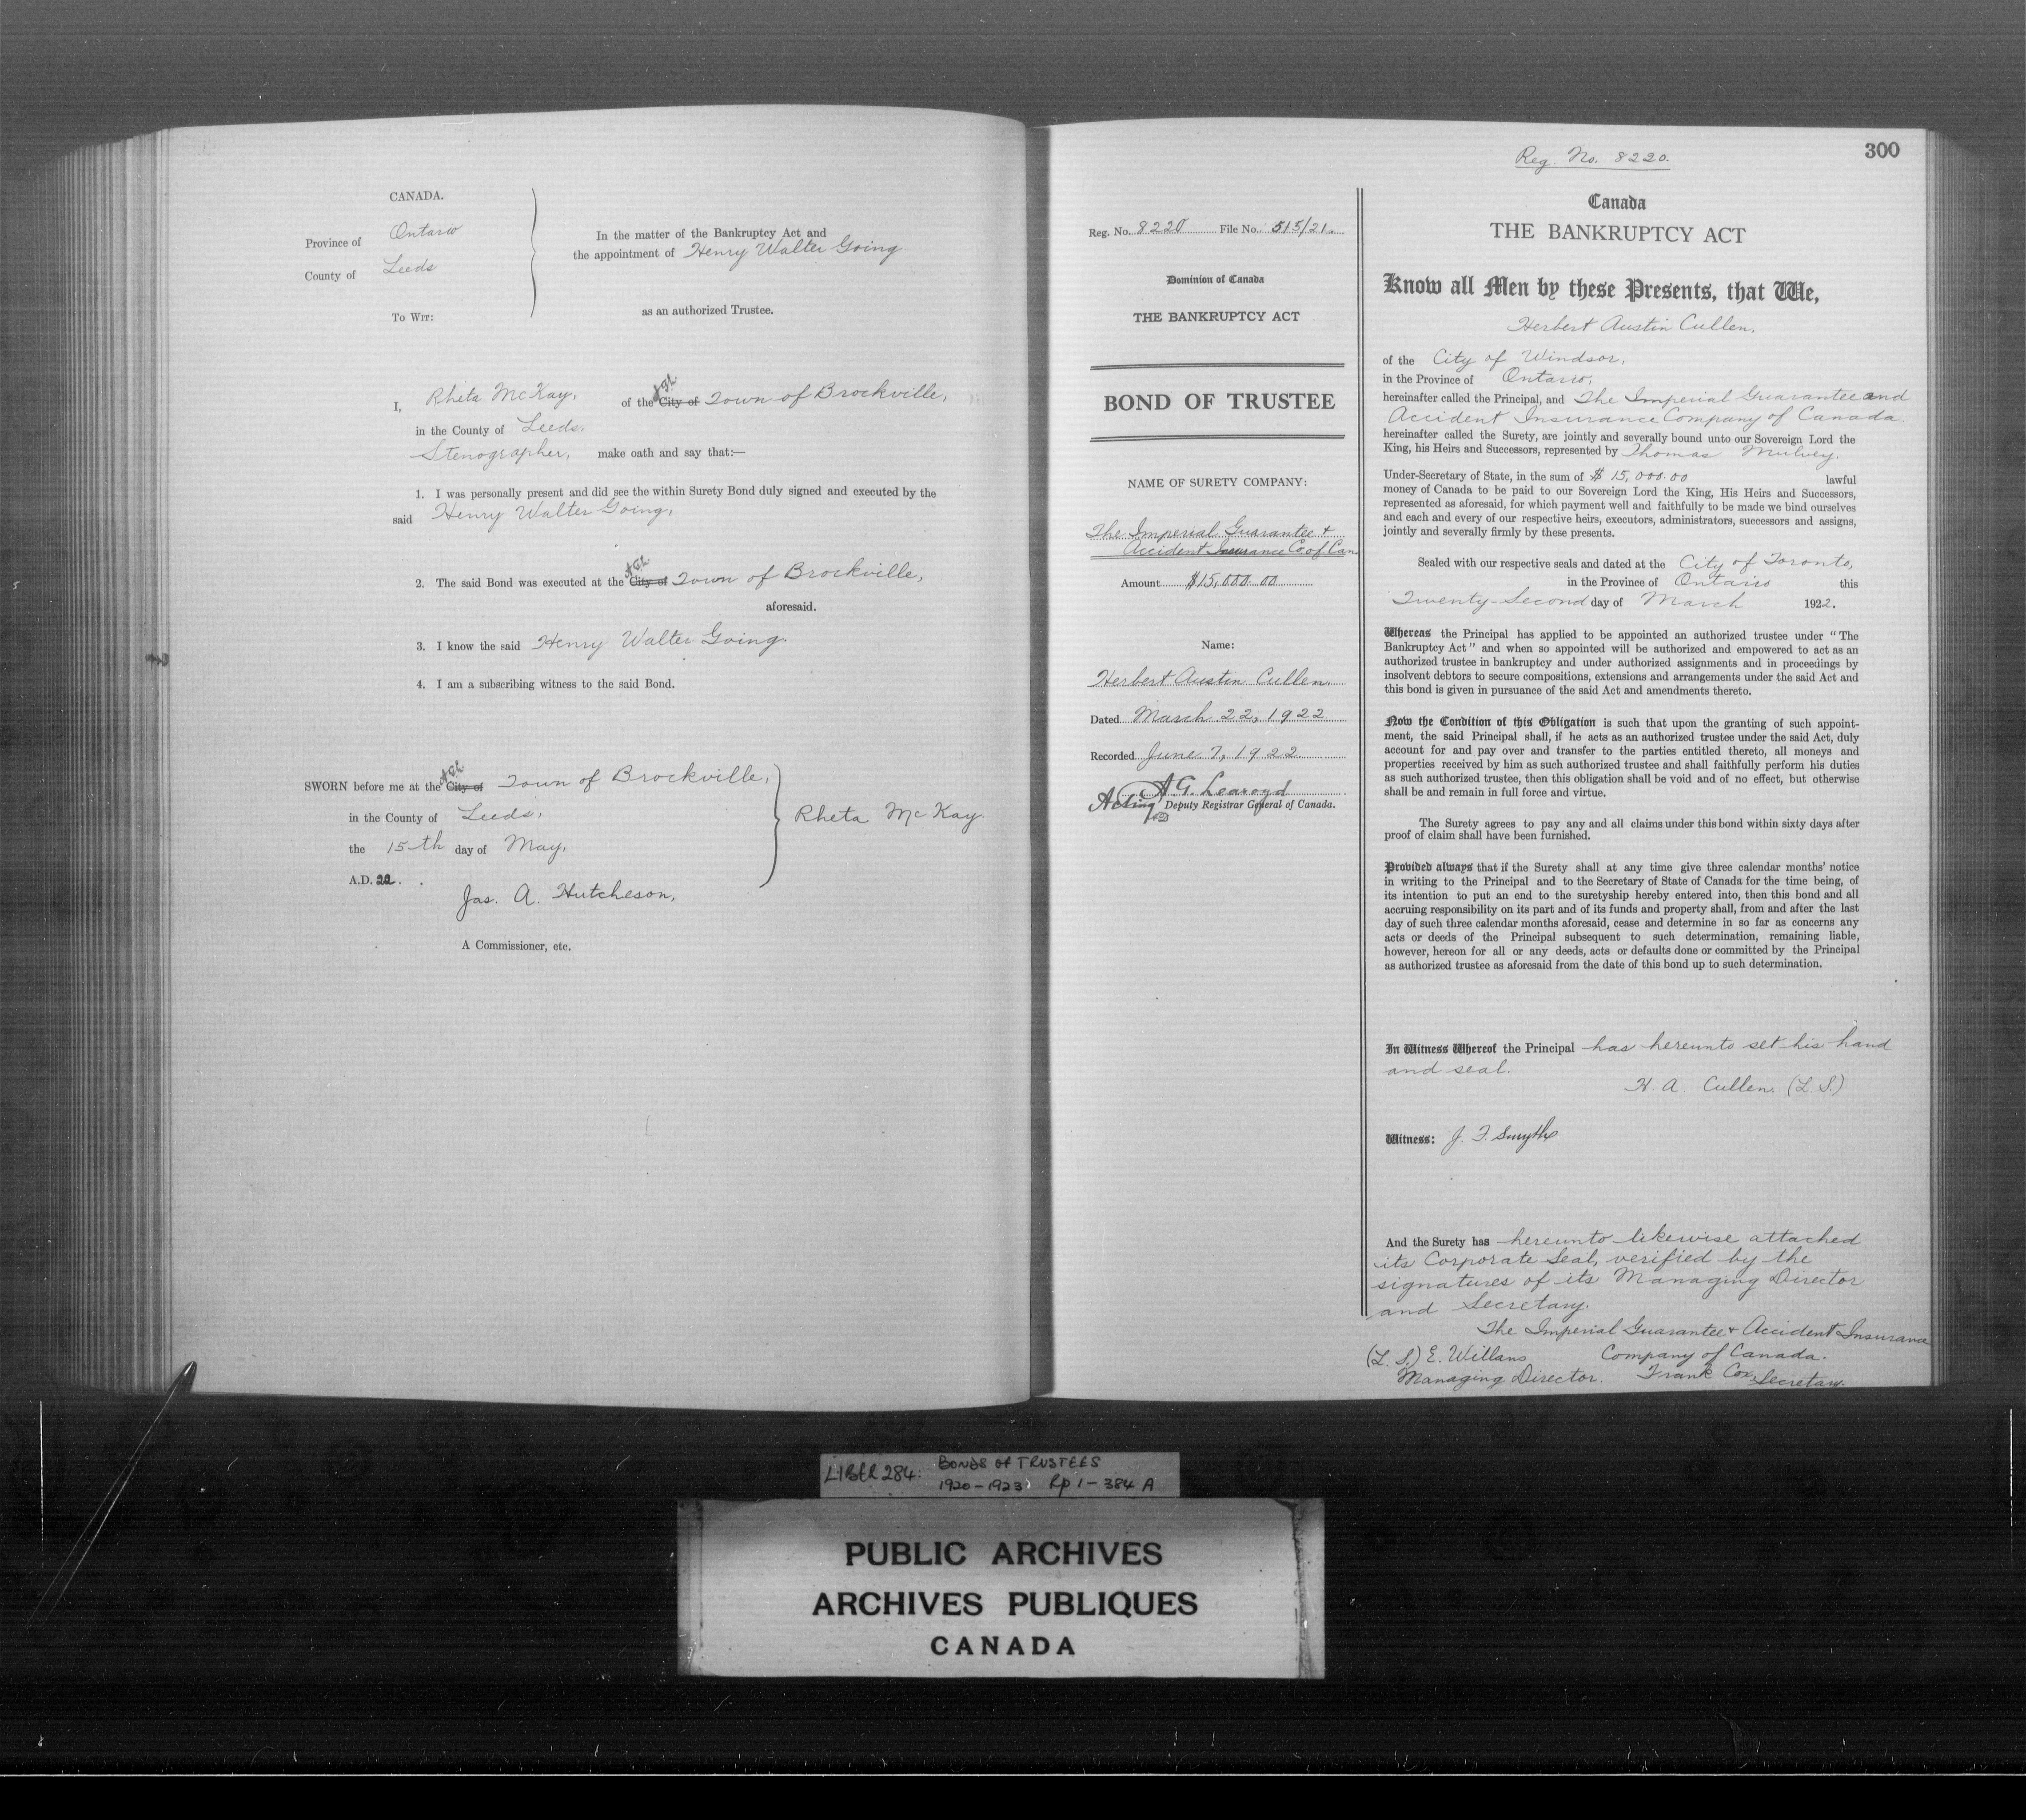 CANADA.
Province of Ontario
County of Leeds
To Wit:
In the matter of the Bankruptcy Act and
the appointment of Henry Walter Going
as an authorized Trustee.
I, Rheta McKay, of the City of Town of Brockville,
in the County of Leeds,
Stenographer, make oath and say that:—
1. I was personally present and did see the within Surety Bond duly signed and executed by the
said Henry Walter Going,
2. The said Bond was executed at the City of Town of Brockville,
aforesaid.
3. I know the said Henry Walter Going.
4. I am a subscribing witness to the said Bond.
SWORN before me at the City of Town of Brockville,
in the County of Leeds,
the 15th day of May,
A.D. 22.
Rheta McKay
Jas. A. Hutcheson,
A Commissioner, etc.
Reg. No. 8220 File No. 515/21.
Dominion of Canada
THE BANKRUPTCY ACT
BOND OF TRUSTEE
NAME OF SURETY COMPANY:
The Imperial Guarantee &
Accident Insurance Co of Can.
Amount $15,000.00
Name:
Herbert Austin Cullen
Dated March 22, 1922
Recorded June 7, 1922
A G. Learoyd
Acting Deputy Registrar General of Canada.
Reg. No. 8220.
300
Canada
THE BANKRUPTCY ACT
Know all Men by these Presents, that We,
Herbert Austin Cullen,
of the City of Windsor,
in the Province of Ontario,
hereinafter called the Principal, and The Imperial Guarantee and
Accident Insurance Company of Canada.
hereinafter called the Surety, are jointly and severally bound unto our Sovereign Lord the
King, his Heirs and Successors, represented by Thomas Mulvey.
Under-Secretary of State, in the sum of $ 15,000.00 lawful
money of Canada to be paid to our Sovereign Lord the King, His Heirs and Successors,
represented as aforesaid, for which payment well and faithfully to be made we bind ourselves
and each and every of our respective heirs, executors, administrators, successors and assigns,
jointly and severally firmly by these presents.
Sealed with our respective seals and dated at the City of Toronto,
in the Province of Ontario this
Twenty-Second day of March 1922.
Whereas the Principal has applied to be appointed an authorized trustee under "The
Bankruptcy Act" and when so appointed will be authorized and empowered to act as an
authorized trustee in bankruptcy and under authorized assignments and in proceedings by
insolvent debtors to secure compositions, extensions and arrangements under the said Act and
this bond is given in pursuance of the said Act and amendments thereto.
Now the Condition of this Obligation is such that upon the granting of such appoint-
ment, the said Principal shall, if he acts as an authorized trustee under the said Act, duly
account for and pay over and transfer to the parties entitled thereto, all moneys and
properties received by him as such authorized trustee and shall faithfully perform his duties
as such authorized trustee, then this obligation shall be void and of no effect, but otherwise
shall be and remain in full force and virtue.
The Surety agrees to pay any and all claims under this bond within sixty days after
proof of claim shall have been furnished.
Provided always that if the Surety shall at any time give three calendar months' notice
in writing to the Principal and to the Secretary of State of Canada for the time being, of
its intention to put an end to the suretyship hereby entered into, then this bond and all
accruing responsibility on its part and of its funds and property shall, from and after the last
day of such three calendar months aforesaid, cease and determine in so far as concerns any
acts or deeds of the Principal subsequent to such determination, remaining liable,
however, hereon for all or any deeds, acts or defaults done or committed by the Principal
as authorized trustee as aforesaid from the date of this bond up to such determination.
In Witness Whereof the Principal has hereunto set his hand
and seal.
H. A. Cullen. (L.S.)
Witness: J. F. Smythe
And the Surety has hereunto likewise attached
its Corporate Seal, verified by the
signatures of its Managing Director
and Secretary.
The Imperial Guarantee & Accident Insurance
Company of Canada.
(L. S.) E. Willans
Managing Director.
Frank Cox, Secretary.
LIBER 284: BONDS OF TRUSTEES
1920-1923 Rp 1-384 A
PUBLIC ARCHIVES
ARCHIVES PUBLIQUES
CANADA